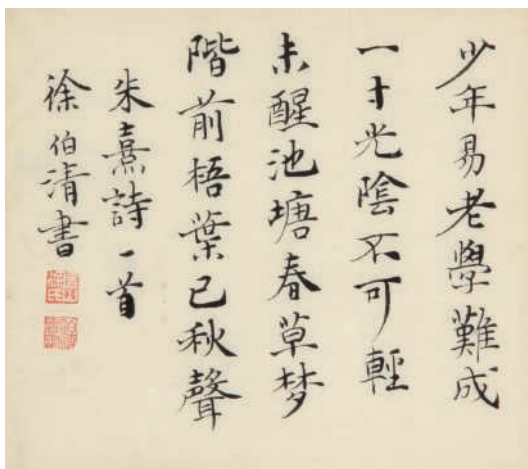 少年易老學難成
一寸光陰不可輕
未醒池塘春草梦
階前梧葉已秋聲
朱熹詩一首
徐伯清書